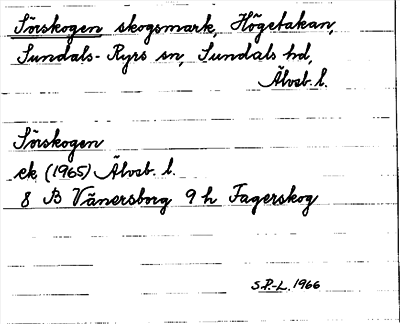 Sörskogen skogsmark, Högetakan,
Sundals-Ryrs sn, Sundals hd,
Älvsb. l.
Sörskogen
ek (1965) Älvsb. l.
8 B Vänersborg 9 h Fagerskog
S.P.-L. 1966